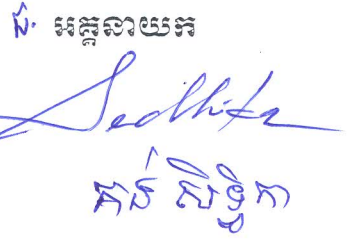 ជ. អគ្គនាយក
Sedhika
គាន់ សិទ្ធិកា